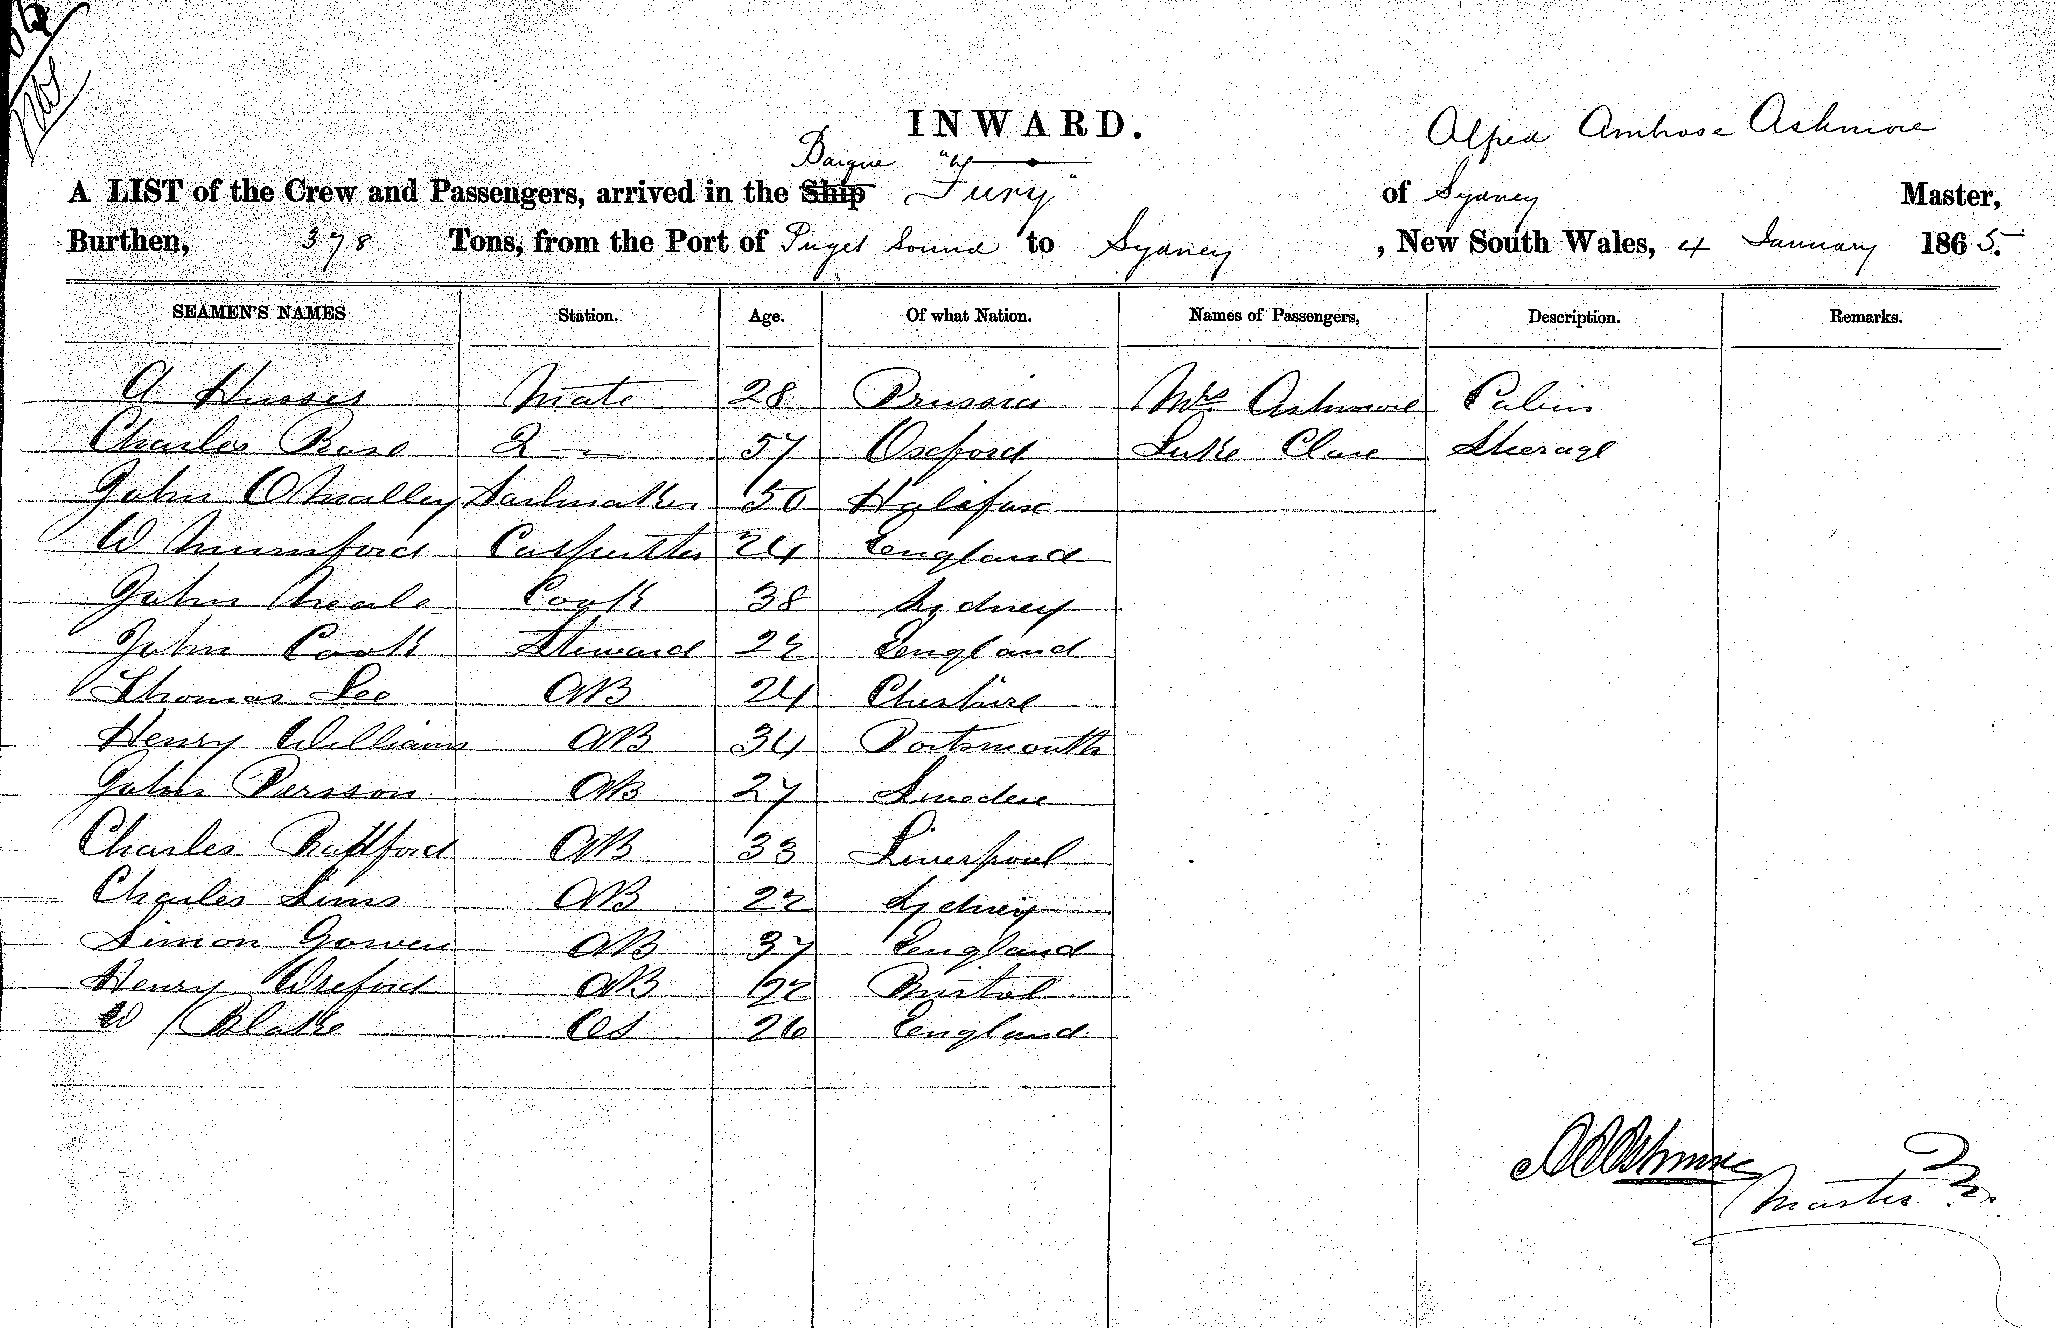 INWARD.
Alfred Ambrose Ashmore
Barque
A LIST of the Crew and Passengers, arrived in the Ship "Fury" of Sydney Master,
Burthen, 378 Tons, from the Port of Puget Sound to Sydney , New South Wales, 4 January 1865.
SEAMEN'S NAMES Station. Age. Of what Nation. Names of Passengers, Description. Remarks.
A Mate 28 Prussia Mrs Ashmore Cabin
Charles Rose 2 — 57 Oxford Luke Clare Steerage
John O'Malley Sailmaker 50 Halifax
W Mumford Carpenter 24 England
John Neale Cook 38 Sydney
John Cook Steward 22 England
Thomas Lee AB 24 Cheshire
Henry Williams AB 34 Portsmouth
John Persson AB 27 Sweden
Charles AB 33 Liverpool
Charles Sims AB 22 Sydney
Simon Gowen AB 37 England
Henry Wreford AB 22 Bristol
W Blake OS 26 England
AAAshmore
Master